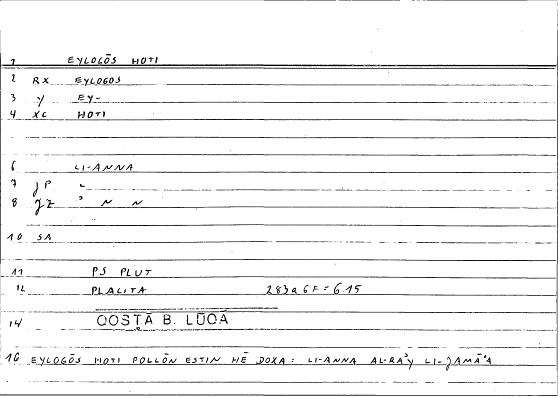 1 EYLOGŌS HOTI
2 RX EYLOGOS
3 y EY-
4 XC HOTI
6 LI-ANNA
7 JP L
8 JZ ʾ N N
10 SA
11 PS PLUT
12 PLACITA 283a6F=6.15
14 QOSṬĀ B. LŪQĀ
16 EYLOGŌS HOTI POLLŌN ESTIN HĒ DOXA: LI-ANNA AL-RAʾy LI-JAMĀʿA